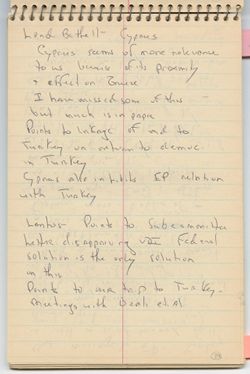 Lord Bethell - Cyprus
Cyprus seems of more relevance
to us because of its proximity
+ effect on Greece
I have missed some of this
but much is in paper
Points to linkage of aid to
Turkey on return to democ.
in Turkey
Cyprus also inhibits EP relation
with Turkey
Lantos - Points to Subcommittee
letter disapproving Federal
solution is the only solution
on this
Points to our trip to Turkey -
meetings with Ozal et al